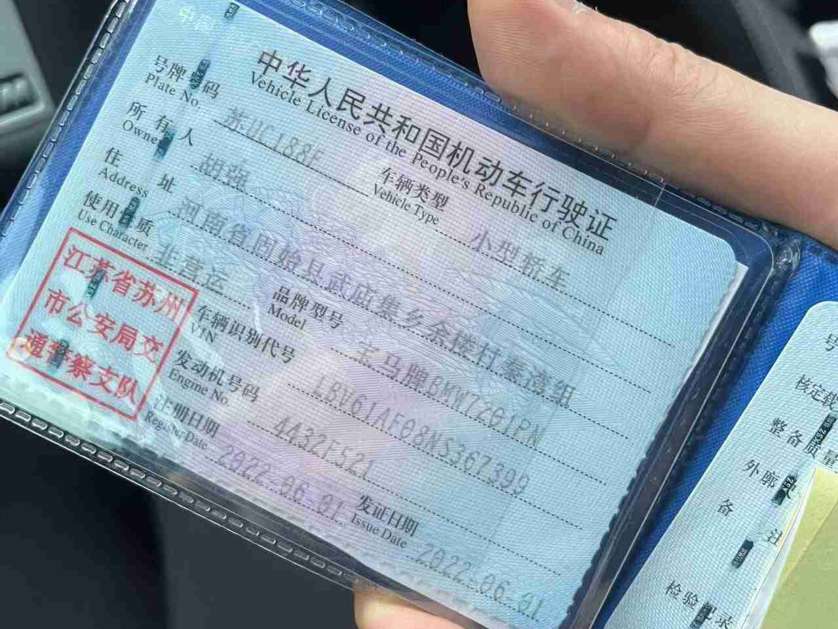 中华人民共和国机动车行驶证
Vehicle License of the People's Republic of China
号牌号码 苏UC188F 车辆类型 小型轿车
Plate No. Vehicle Type
所有人 胡强
Owner
住址 河南省固始县武庙集乡余楼村秦湾组
Address
使用性质 非营运 品牌型号 宝马牌BMW7201PN
Use Character Model
江苏省苏州
市公安局交
通警察支队
车辆识别代号 LBV61AF08NS367399
VIN
发动机号码 4432F521
Engine No.
注册日期 2022-06-01 发证日期 2022-06-01
Register Date Issue Date
号
核定载
整备质量
外廓
备 注
检验记录